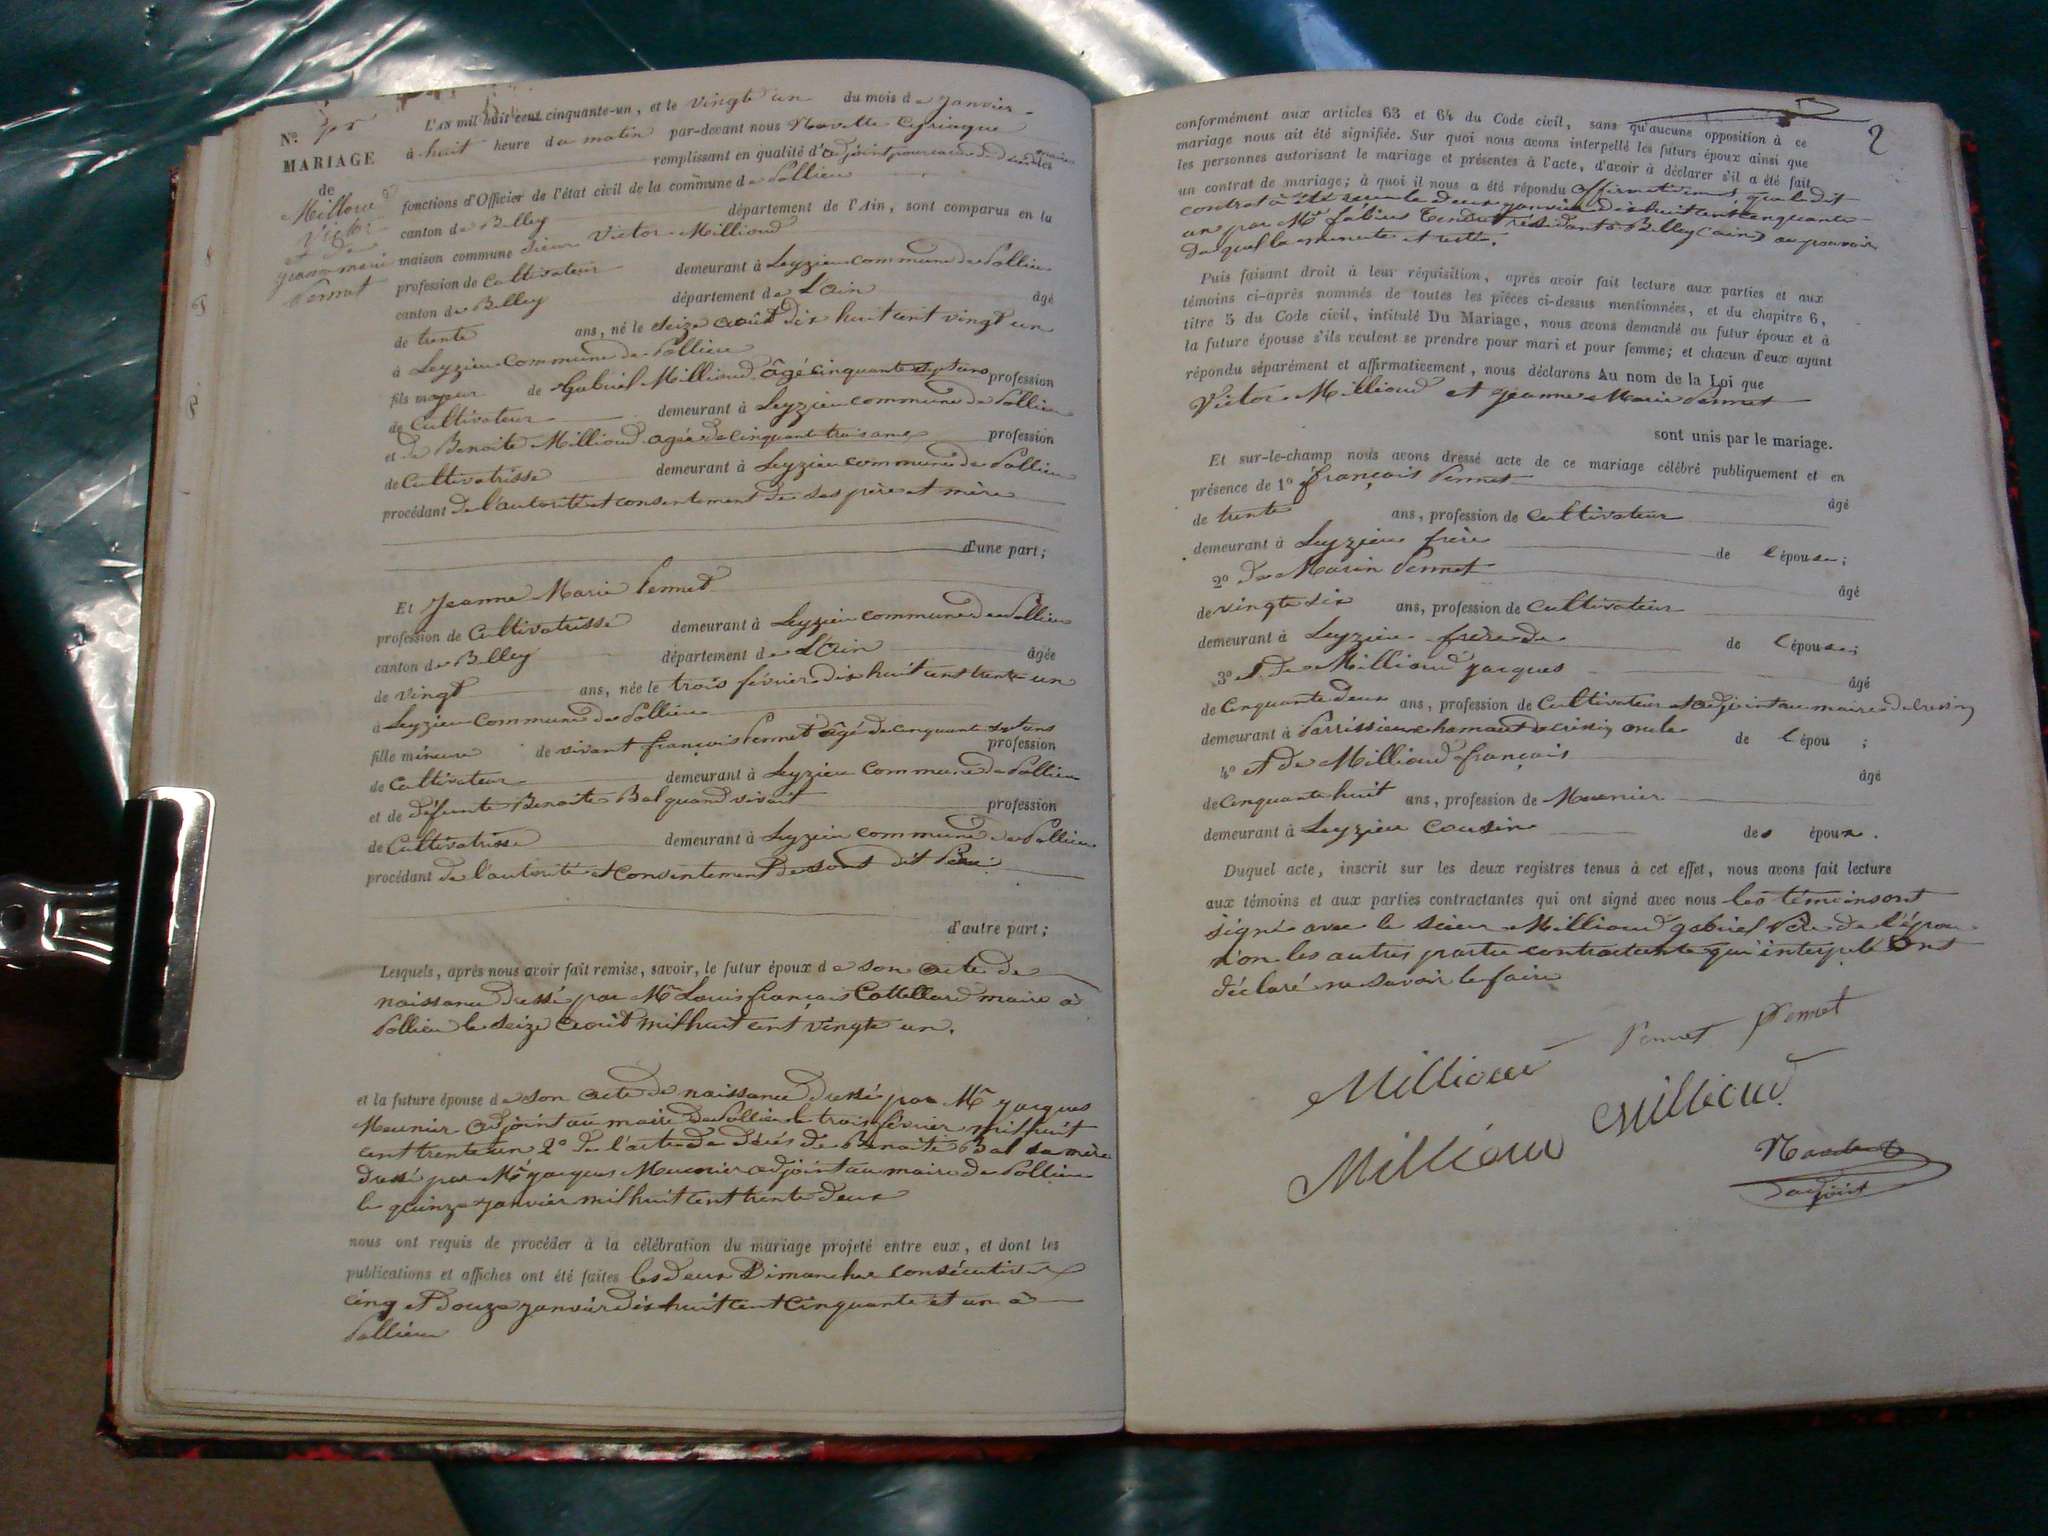 L'AN mil huit cent cinquante-un, et le vingt un du mois de janvier
à huit heure du matin par-devant nous Navette Cyriaque
remplissant en qualité d'adjoint pour cause de
fonctions d'Officier de l'état civil de la commune de Pollieu
canton de Belley département de l'Ain, sont comparus en la
maison commune sieur Victor Millioud
profession de Cultivateur demeurant à Leyzieu commune de Pollieu
canton de Belley département de L'ain âgé
de trente ans, né le seize août dix huit cent vingt un
à Leyzieu commune de Pollieu
fils majeur de Gabriel Millioud âgé cinquante sept ans profession
de Cultivateur demeurant à Leyzieu commune de Pollieu
et de Benoite Millioud agée de cinquante trois ans profession
de Cultivatrisse demeurant à Leyzieu commune de Pollieu
procédant de l'autorité et consentement de ses père et mère
d'une part;
Nº
MARIAGE
de
Millioud
Victor
et de
jeanne marie
Pernet
Et Jeanne Marie Pernet
profession de Cultivatrisse demeurant à Leyzieu commune de Pollieu
canton de Belley département de L'ain âgée
de vingt ans, née le trois février dix huit cent trente un
à Leyzieu commune de Pollieu
fille mineure de vivant françois Pernet âgé de cinquante sept ans
profession
de Cultivateur demeurant à Leyzieu commune de Pollieu
et de défunte Benoite Bal quand vivait profession
de Cultivatrisse demeurant à Leyzieu commune de Pollieu
procédant de l'autorité et consentement de sont dit Père
d'autre part;
Lesquels, après nous avoir fait remise, savoir, le futur époux de son acte de
naissance dressé par Mr Louis françois Cattelard maire à
Pollieu le seize aout mil huit cent vingte un.
et la future épouse de son acte de naissance dressé par Mr jacques
Meunier adjoint au maire de Pollieu le trois février mil huit
cent trente un 2º de l'acte de décés de Benoite Bal sa mère
dressé par Mr jacques Meunier adjoint au maire de Pollieu
le quinze janvier mil huit cent trente deux
nous ont requis de procéder à la célébration du mariage projeté entre eux, et dont les
publications et affiches ont été faites les deux Dimanches consécutives
cinq et douze janvier dix huit cent cinquante et un à
Pollieu
2
conformément aux articles 63 et 64 du Code civil, sans qu'aucune opposition à ce
mariage nous ait été signifiée. Sur quoi nous avons interpellé les futurs époux ainsi que
les personnes autorisant le mariage et présentes à l'acte, d'avoir à déclarer s'il a été fait
un contrat de mariage; à quoi il nous a été répondu affirmativement, que ledit
contrat à été reçu le deux janvier dix huit cent cinquante
un par Mr fabius Tendret résidant à Belley (ain) au pouvoir
duquel la minute et restée.
Puis faisant droit à leur réquisition, après avoir fait lecture aux parties et aux
témoins ci-après nommés de toutes les pièces ci-dessus mentionnées, et du chapitre 6,
titre 5 du Code civil, intitulé Du Mariage, nous avons demandé au futur époux et à
la future épouse s'ils veulent se prendre pour mari et pour femme; et chacun d'eux ayant
répondu séparément et affirmativement, nous déclarons Au nom de la Loi que
Victor Millioud et jeanne Marie Pernet
sont unis par le mariage.
Et sur-le-champ nous avons dressé acte de ce mariage célébré publiquement et en
présence de 1º françois Pernet
âgé
de trente ans, profession de cultivateur
demeurant à Leyzieu frère de l'épouse;
2º de Marin Pernet
âgé
de vingte six ans, profession de cultivateur
demeurant à Leyzieu frère de de l'épouse;
3º et de Millioud jacques
âgé
de cinquante deux ans, profession de Cultivateur et adjoint au maire de
demeurant à Parrissieu oncle de l'épou ;
4º et de Millioud françois
âgé
de cinquante huit ans, profession de Meunier
demeurant à Leyzieu cousin des époux.
Duquel acte, inscrit sur les deux registres tenus à cet effet, nous avons fait lecture
aux témoins et aux parties contractantes qui ont signé avec nous les témoins ont
signé avec le sieur Millioud gabriel Père de l'époux
non les autres partie contractante qui interpelé ont
déclaré ne savoir le faire
Pernet Pernet
Millioud
Millioud
Millioud
Navette
adjoint